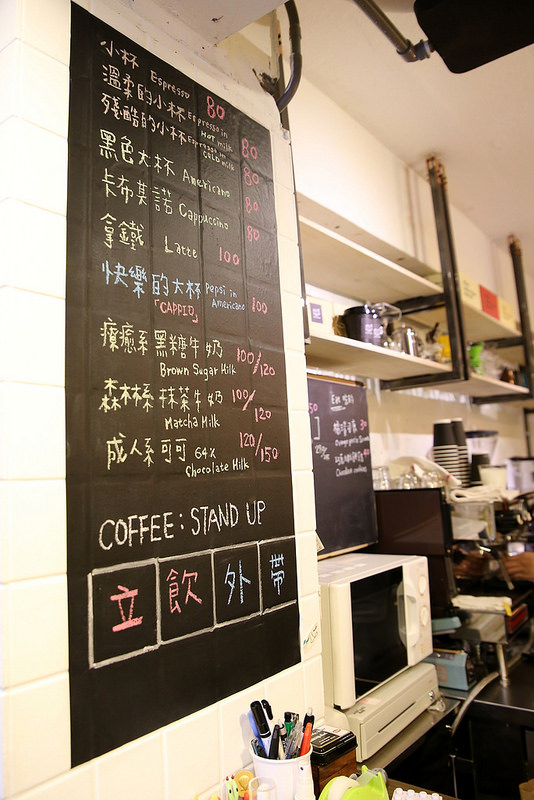 小杯 Espresso 80
溫柔的小杯 Espresso in HOT milk 80
殘酷的小杯 Espresso in COLD milk 80
黑色大杯 Americano 80
卡布其諾 Cappuccino 80
拿鐵 Latte 100
快樂的大杯 Pepsi in Americano 100
「CAPPIO」
療癒系 黑糖牛奶 100/120
Brown Sugar Milk
森林系 抹茶牛奶 100/120
Matcha Milk
成人系 可可 64% 120/150
Chocolate Milk
COFFEE: STAND UP
立飲外帶
Eat